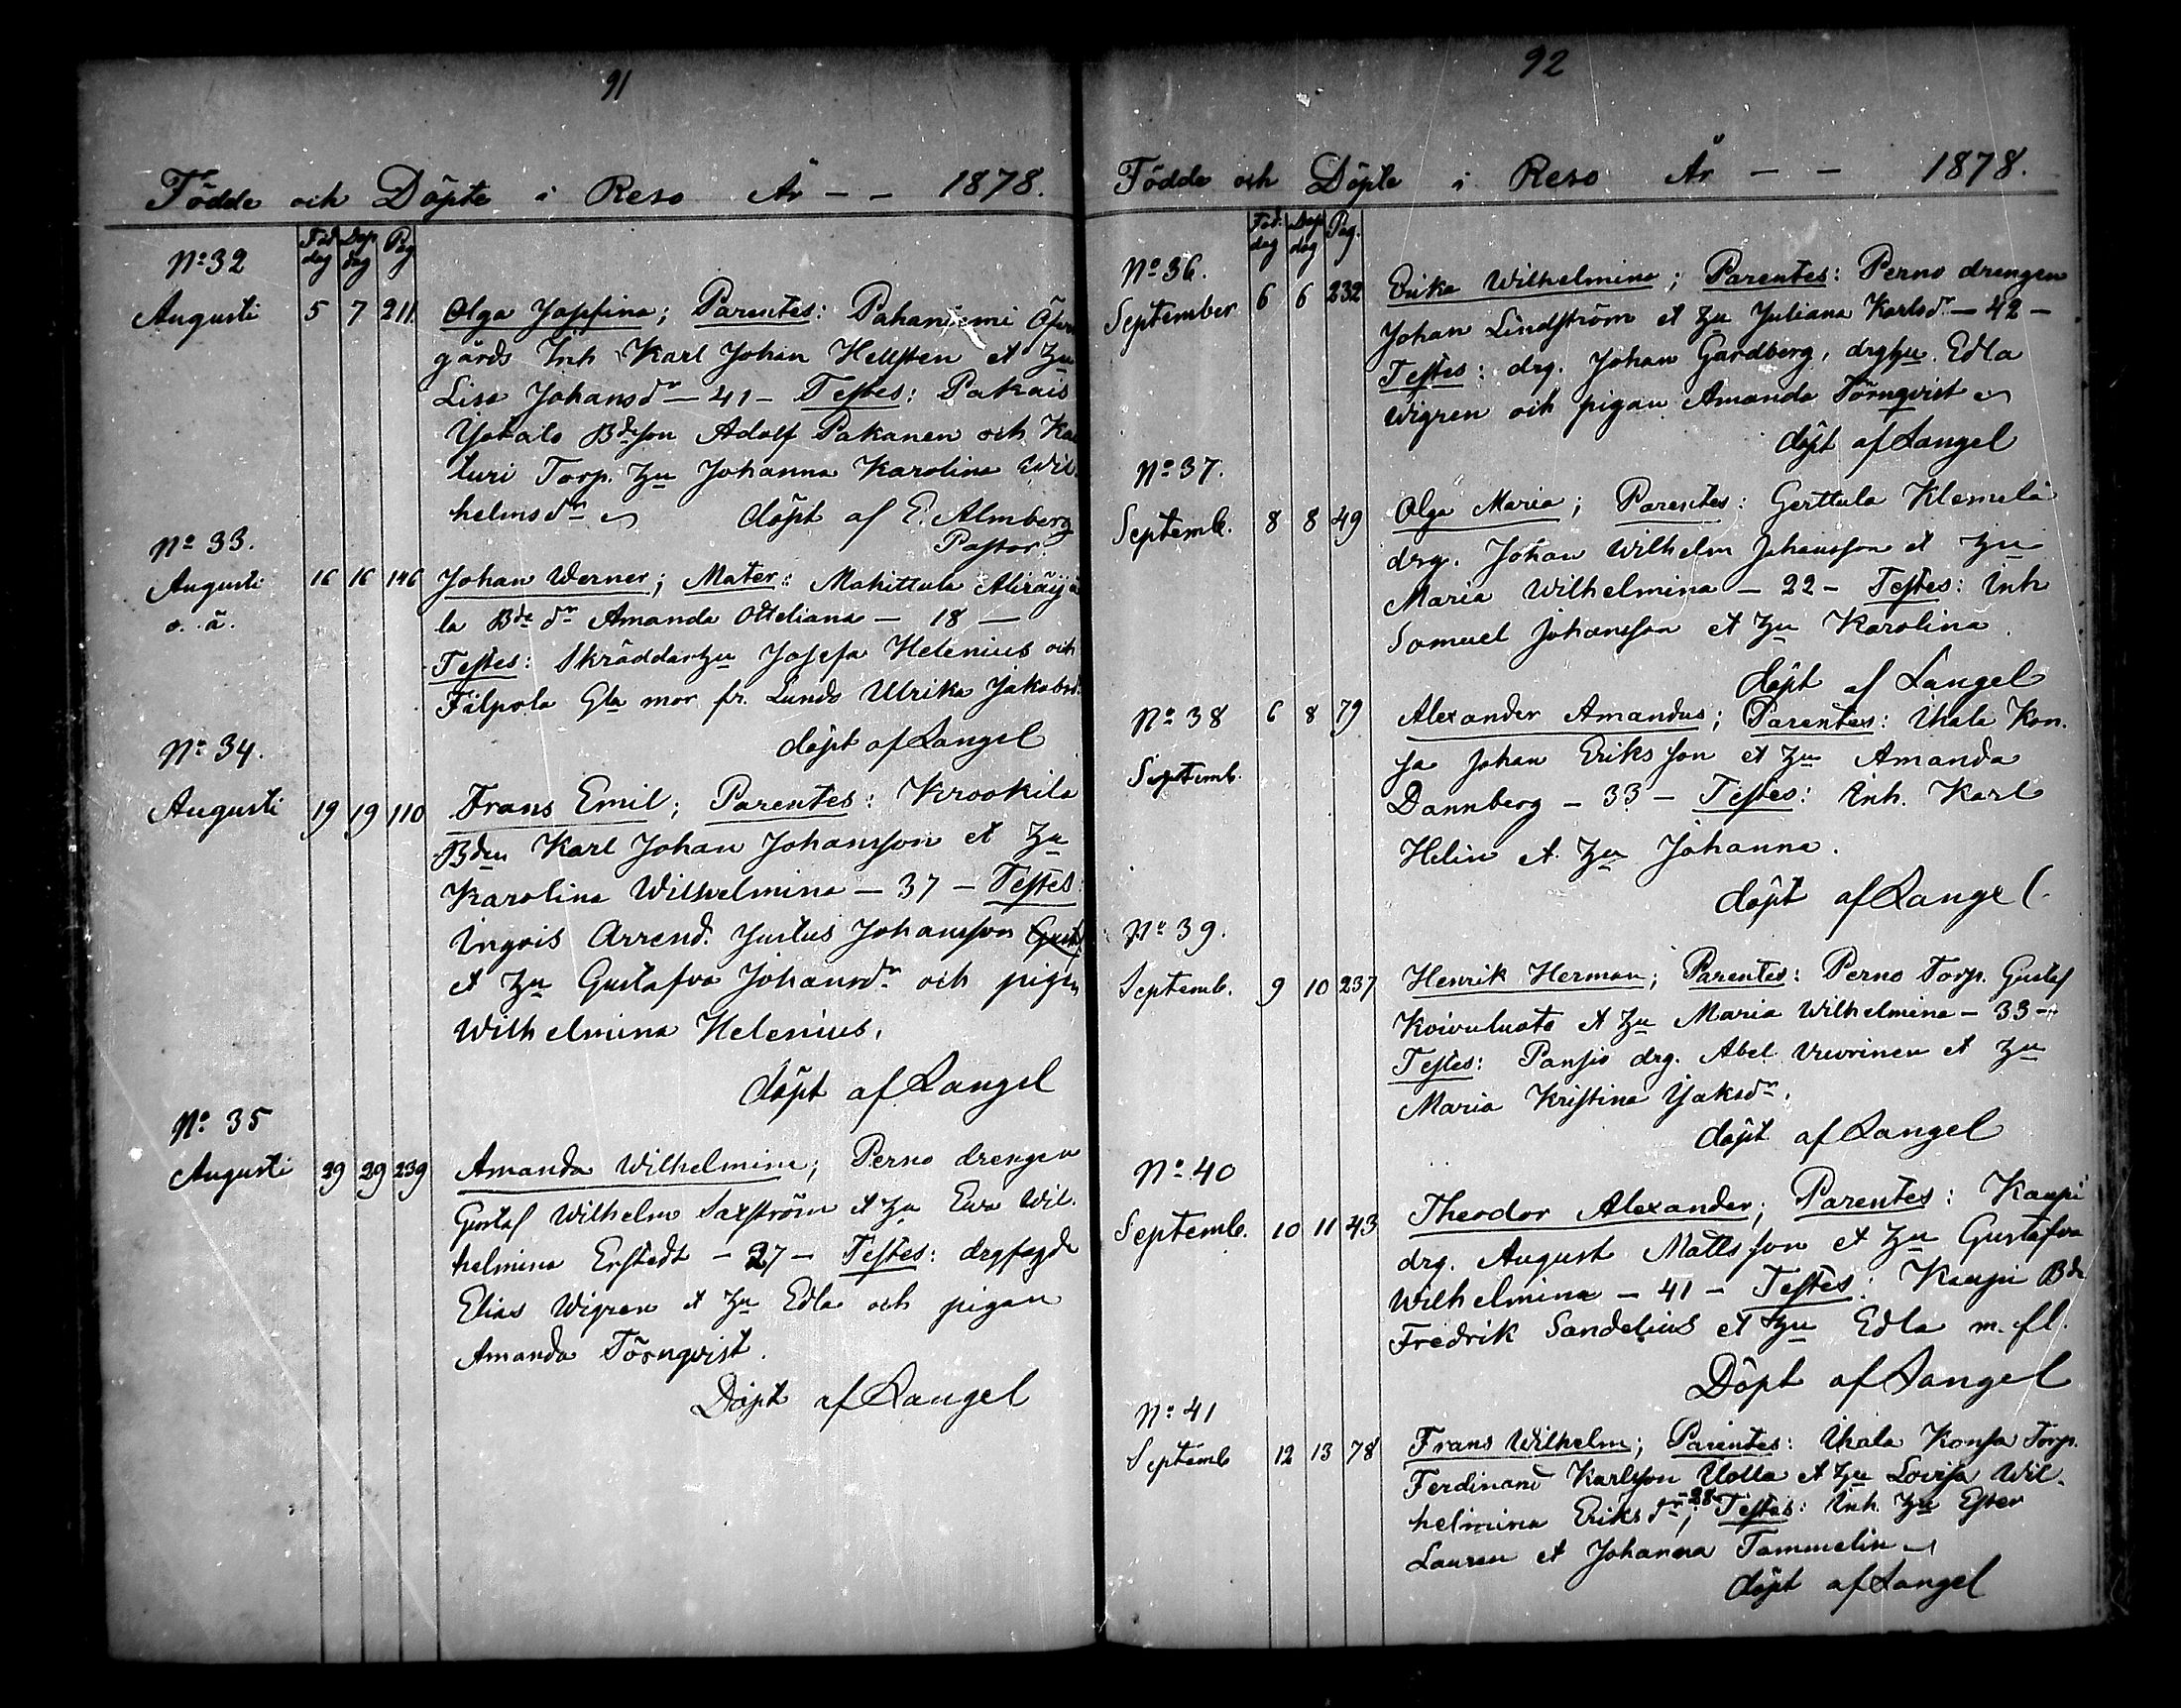 91
Födde och Döpte i Reso År - - 1878.
Föd. dag Dop dag Pag
No 32
Augusti 5 7 211 Olga Josefina; Parentes: Pahaniemi Öfver
gårds Inh Karl Johan Hellsten et hu
Lisa Johansdr - 41 - Testes: Pakais
Yotalo Bdeson Adolf Pakanen och
turi Torp. hu Johanna Karolina Wil
helmsdr döpt af E. Almberg
Pastor.
No 33.
Augusti 16 16 146 Johan Werner; Mater: Mahittula Aliräij
o. ä. la Bde dr Amanda Otteliana - 18 -
Testes: Skräddarhu Josefa Helenius och
Filpola Gla mor fr. Lunds Ulrika Jakobsd.
döpt af Langel
No 34.
Augusti 19 19 110 Frans Emil; Parentes: Krookila
Bden Karl Johan Johansson et hu
Karolina Wilhelmina - 37 - Testes:
Ingois Arrend. Justus Johansson
et hu Gustafva Johansdr och pigan
Wilhelmina Helenius.
döpt af Langel
No 35
Augusti 29 29 239 Amanda Wilhelmina; Perno drengen
Gustaf Wilhelm Saxström et hu Eva Wil.
helmina Erstedt - 27 - Testes:
Elias Wigren et hu Edla och pigan
Amanda Törnqvist.
Döpt af Langel
92
Födde och Döpte i Reso År - - 1878.
Föd. dag Dop dag Pag.
No 36.
September 6 6 232 Erika Wilhelmina; Parentes: Perno drengen
Johan Lindström et hu Juliana Karlsdr - 42 -
Testes: drg. Johan Gardberg, drghu. Edla
Wigren och pigan Amanda Törnqvist
döpt af Langel
No 37.
Septemb. 8 8 49 Olga Maria; Parentes: Gerttula Klemelä
drg. Johan Wilhelm Johansson et hu
Maria Wilhelmina - 22 - Testes: Inh
Samuel Johansson et hu Karolina.
döpt af Langel
No 38 6 8 79 Alexander Amandus; Parentes: Ihala Kon.
Septemb. sa Johan Eriksson et hu Amanda
Dannberg - 33 - Testes: Inh. Karl
Helin et hu Johanna.
döpt af Langel
No 39.
Septemb. 9 10 237 Henrik Herman; Parentes: Perno Torp. Gustaf
Koivuluoto et hu Maria Wilhelmina - 33 -
Testes: Pansio drg. Abel Vuorinen et hu
Maria Kristina Jaksdr.
döpt af Langel
No 40
Septemb. 10 11 43 Theodor Alexander; Parentes: Kaupi
drg. August Mattsson et hu Gustafva
Wilhelmina - 41 - Testes: Kaupi Bde
Fredrik Sandelius et hu Edla m. fl.
Döpt af Langel
No 41
Septemb 12 13 78 Frans Wilhelm; Parentes: Ihala Konsa Torp.
Ferdinand Karlsson Uolla et hu Lovisa Wil.
helmina Eriksdr - 28 -; Testes: Inh. hu Ester
Lauren et Johanna Tammelin
döpt af Langel